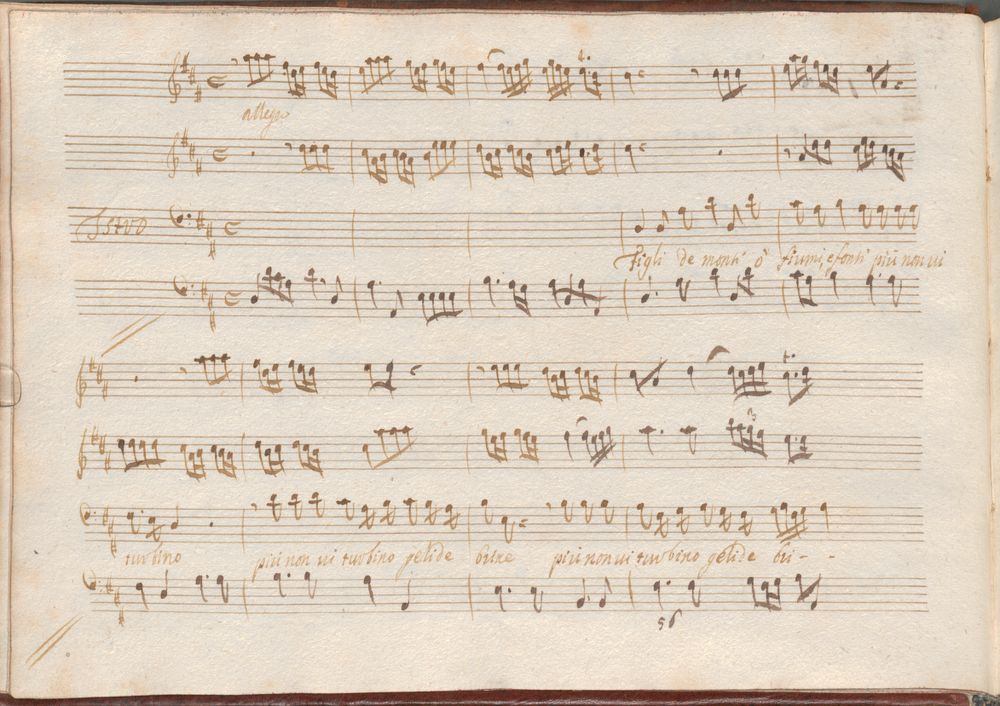 allegro
Istro
Figli de monti ò fiumi, e fonti più non vi
turbino più non vi turbino gelide bure più non vi turbino gelide bu - -
5 6